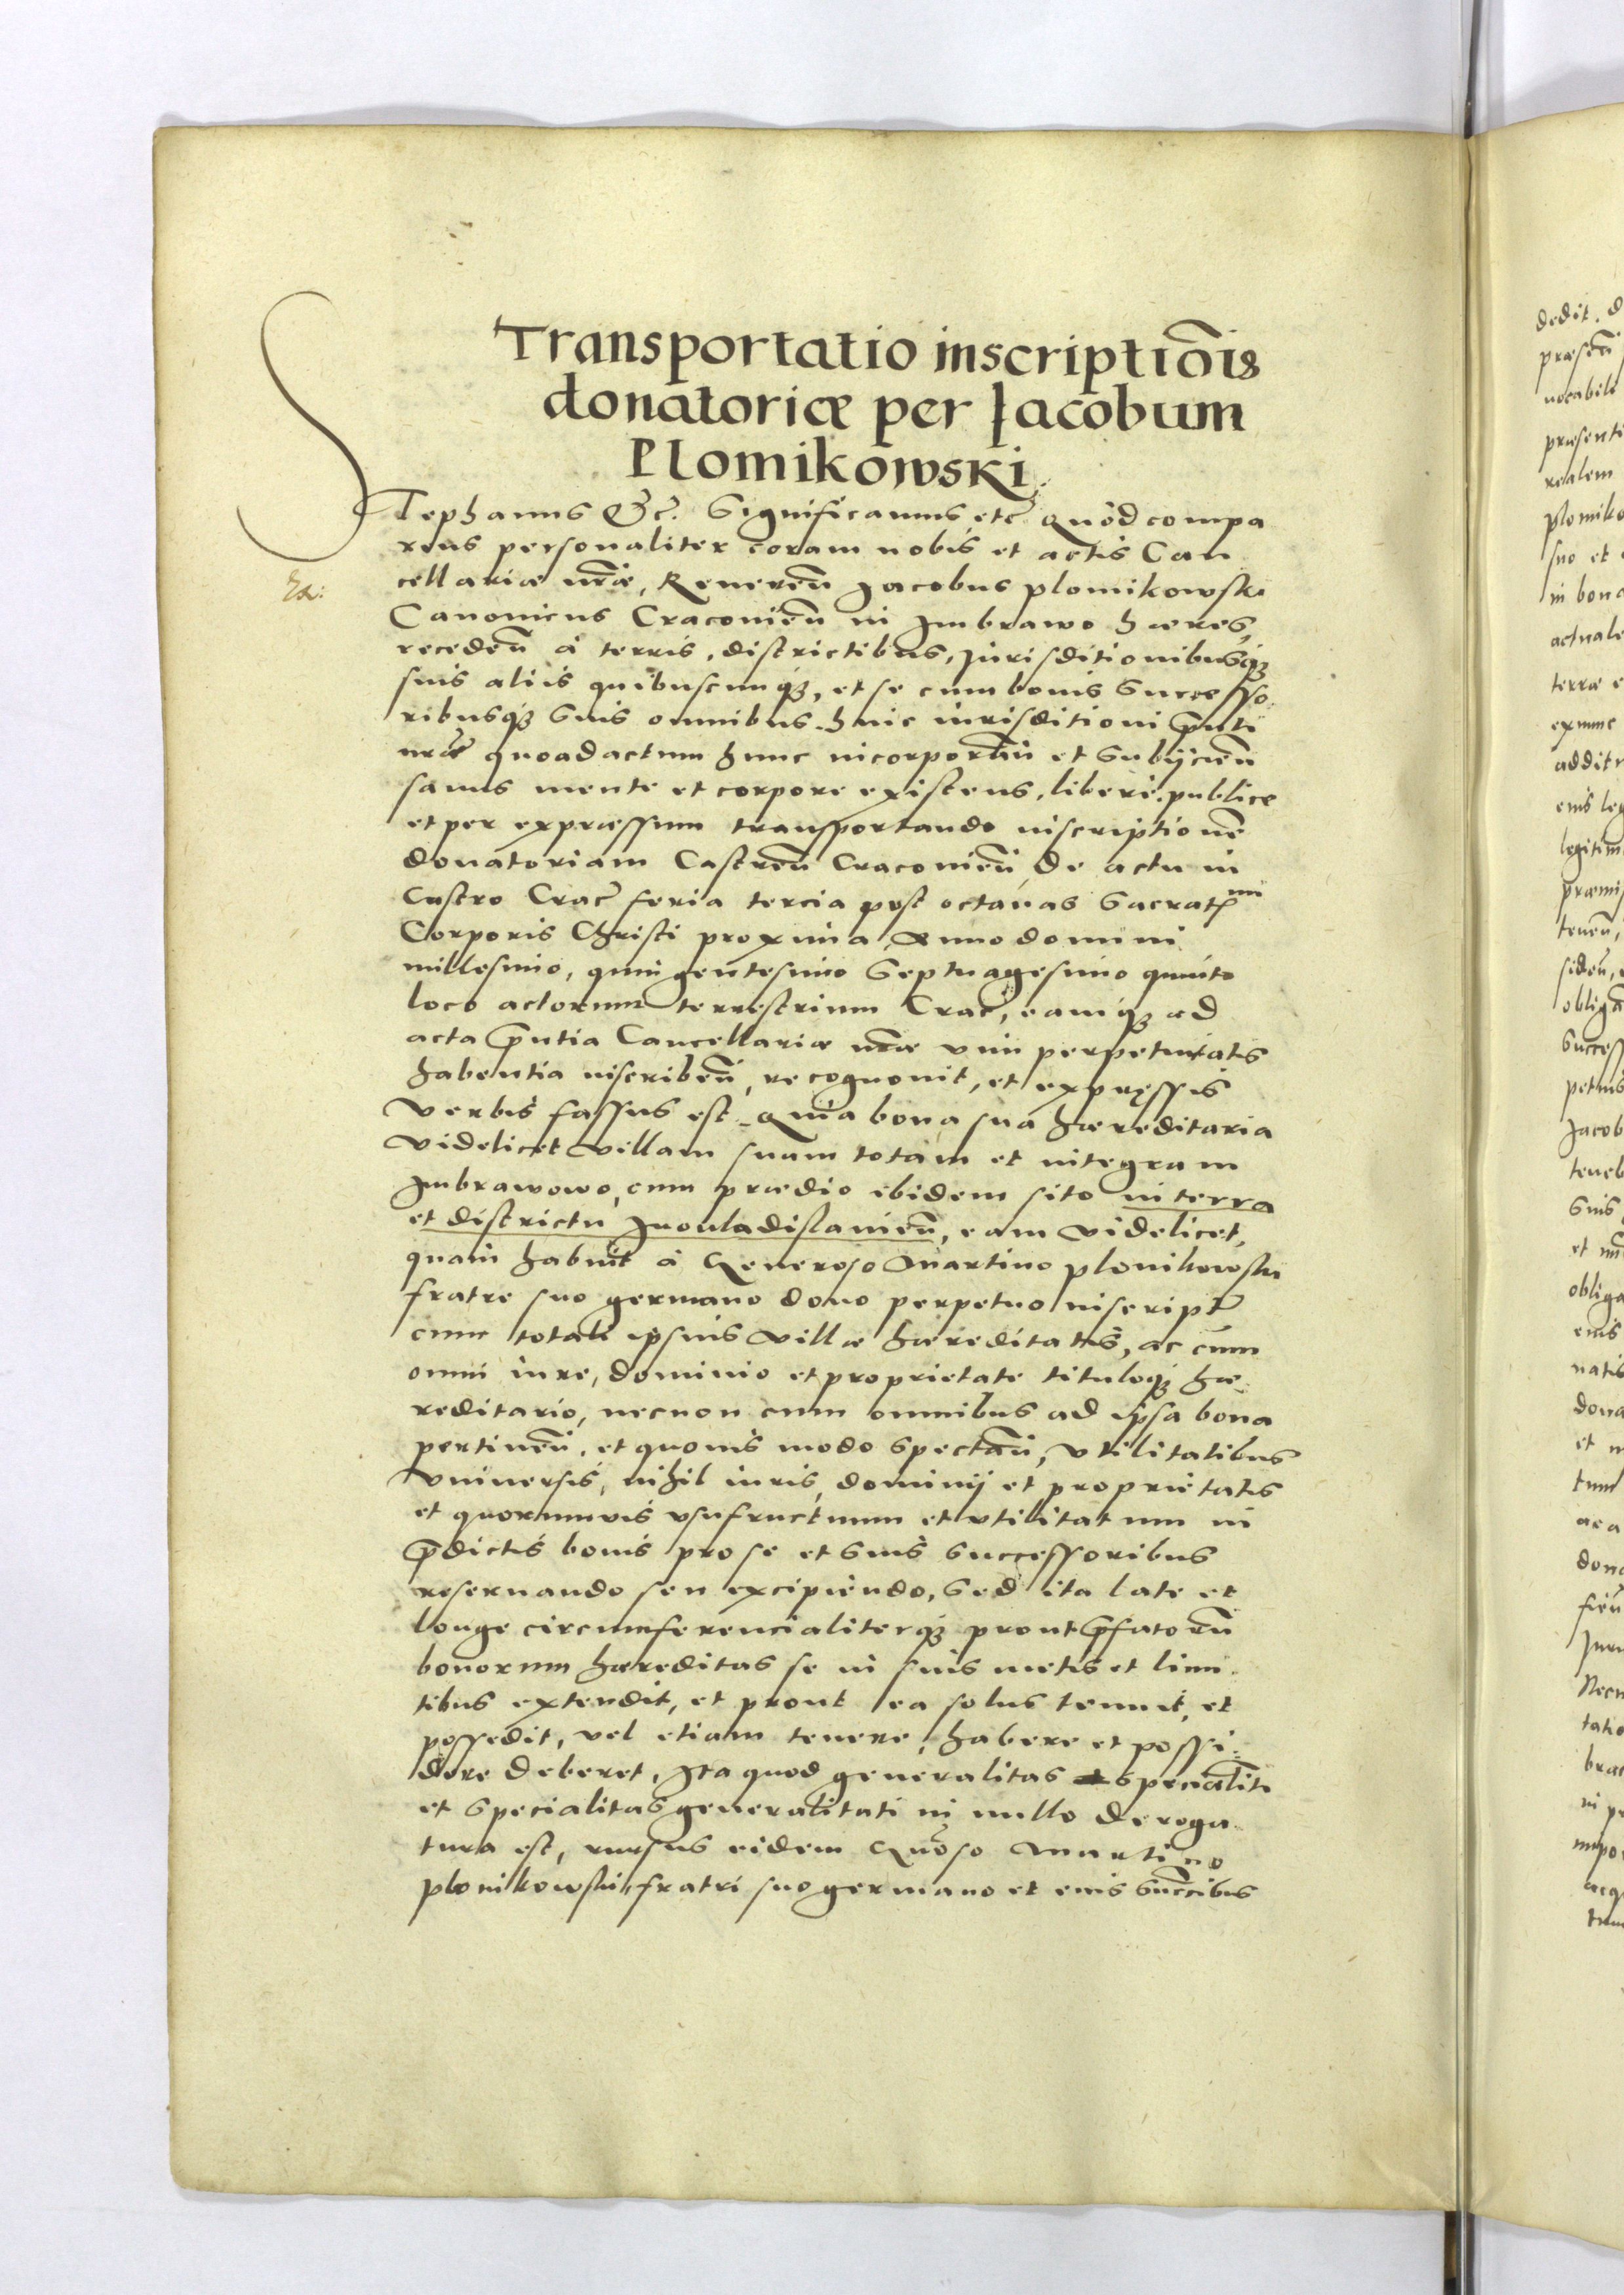 Transportatio inscriptiōis
donatoriæ per Jacobum
Plomikowski.
STephanus &c̃. Significamus etc̃ Quòd compa
rens personaliter coram nobis et actis Can
cellariæ nr̃æ, Reueren̄ Jacobus plomikowski
Ex:
Canonicus Cracouien̄ in Jmbrawo hæres,
receden̄ à terris, districtibus, Jurisditionibusqꝫ
suis aliis quibuscunqꝫ, et se cum bonis Successo
ribusqꝫ Suis omnibus huic iurisditioni p̄nti
nr̃æ quoad actum hunc incorporan̄ et Subijcien̄
sanus mente et corpore existens, liberè, publice
et per expræssum transportando inscriptionē
donatoriam Castren̄ Cracouien̄ de actu in
Castro Crac̃ feria tercia post octauas Sacratmi
Corporis Christi proxima Anno domini
millesimo, quingentesimo Septuagesimo quinto
loco actorum terrestrium Crac̃, eamqꝫ ad
acta p̄ntia Cancellariæ nr̃æ vim perpetuitatis
habentia inscriben̄, recognouit, et expressis
verbis fassus est Quia bona sua hæreditaria
videlicet villam suam totam et integram
Jmbrawowo, cum prædio ibidem sito in terra
et districtu Juouladislauien̄, eam videlicet,
quam habuit à Generoso Martino plomikowski
fratre suo germano dono perpetuo inscript̃
cum totali ipsius villæ hæreditatis, ac cum
omni iure, dominio et proprietate tituloqꝫ hæ
reditario, necnon cum omnibus ad ipsa bona
pertinen̄, et quouis modo spectan̄, vtilitatibus
vniuersis, nihil iuris, dominij et proprietatis
et quorumuis vsufructuum et vtilitatum in
p̄dictis bonis pro se et Suis Successoribus
reseruando seu excipiendo, Sed ita late et
longe circumferencialiterqꝫ prout p̄fatorū
bonorum hæreditas se in suis metis et limi
tibus extendit, et prout ea solus tenuit, et
possedit, vel etiam tenere, habere et possi:
dere deberet, Jta quod generalitas specialiti
et Specialitas generalitati in nullo deroga
tura est, rursus eidem Gnõso Martino
plomikowski, fratri suo germano et eius Succ̄ibus